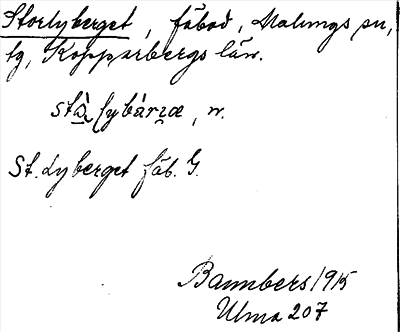 Storlyberget, fäbod, Malungs sn,
tg, Kopparbergs län.
stà̱ lybàrꞇæ, n.
St. Lyberget fäb. G.
Bannbers 1915
Ulma 207